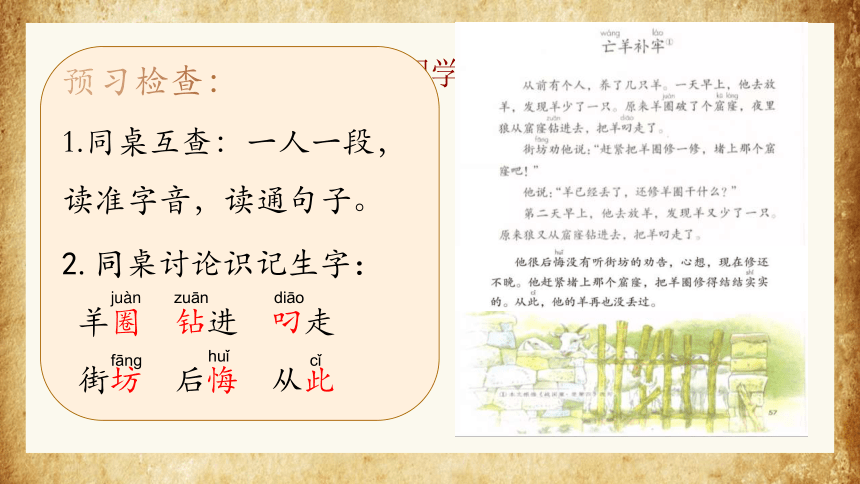 预习检查:
1.同桌互查: 一人一段,
读准字音,读通句子。
2.同桌讨论识记生字:
juàn zuān diāo
羊圈 钻进 叼走
fāng huǐ cǐ
街坊 后悔 从此
学
wáng láo
亡羊补牢①
从前有个人,养了几只羊。一天早上,他去放
juàn kū lóng
羊,发现羊少了一只。原来羊圈破了个窟窿,夜里
zuān diāo
狼从窟窿钻进去,把羊叼走了。
fāng
街坊劝他说:“赶紧把羊圈修一修,堵上那个窟
窿吧!”
他说:“羊已经丢了,还修羊圈干什么?”
第二天早上,他去放羊,发现羊又少了一只。
原来狼又从窟窿钻进去,把羊叼走了。
huǐ
他很后悔没有听街坊的劝告,心想,现在修还
shí
不晚。他赶紧堵上那个窟窿,把羊圈修得结结实实
cǐ
的。从此,他的羊再也没丢过。
57